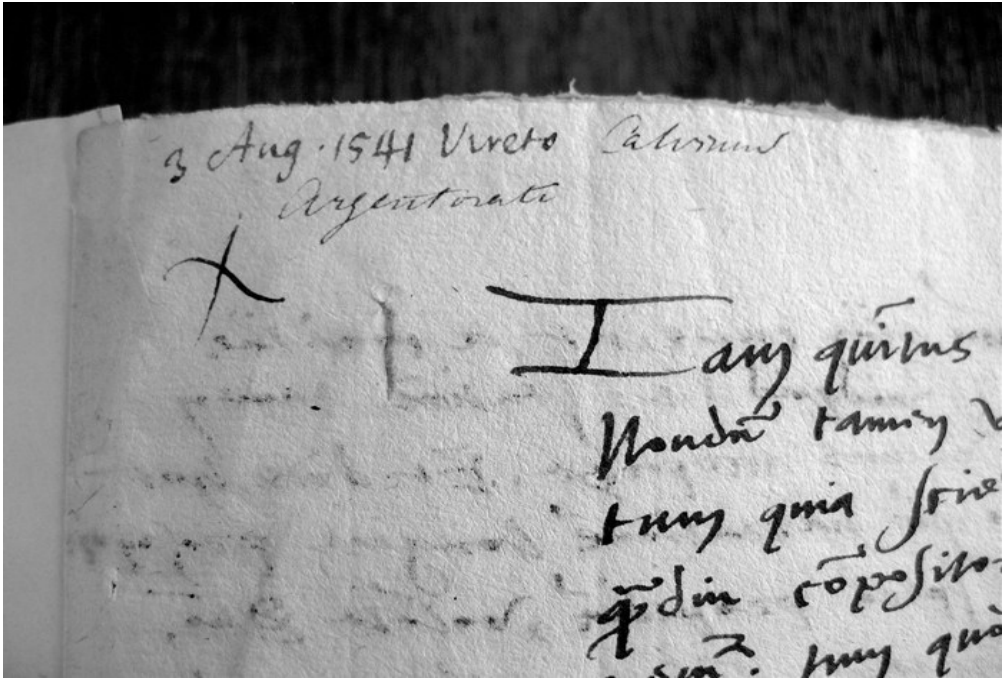 3 Aug. 1541 Vireto Calvinus
Argentorati
Iam quintus
Nondū tamen
tum quia scie
quādiu cōposito
tum quo